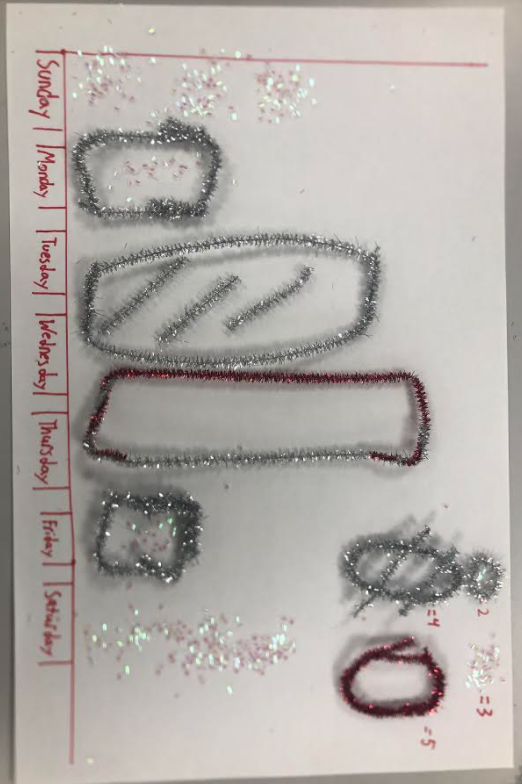 Sunday | Monday | Tuesday | Wednesday | Thursday | Friday | Saturday |
2
=3
=4
=5